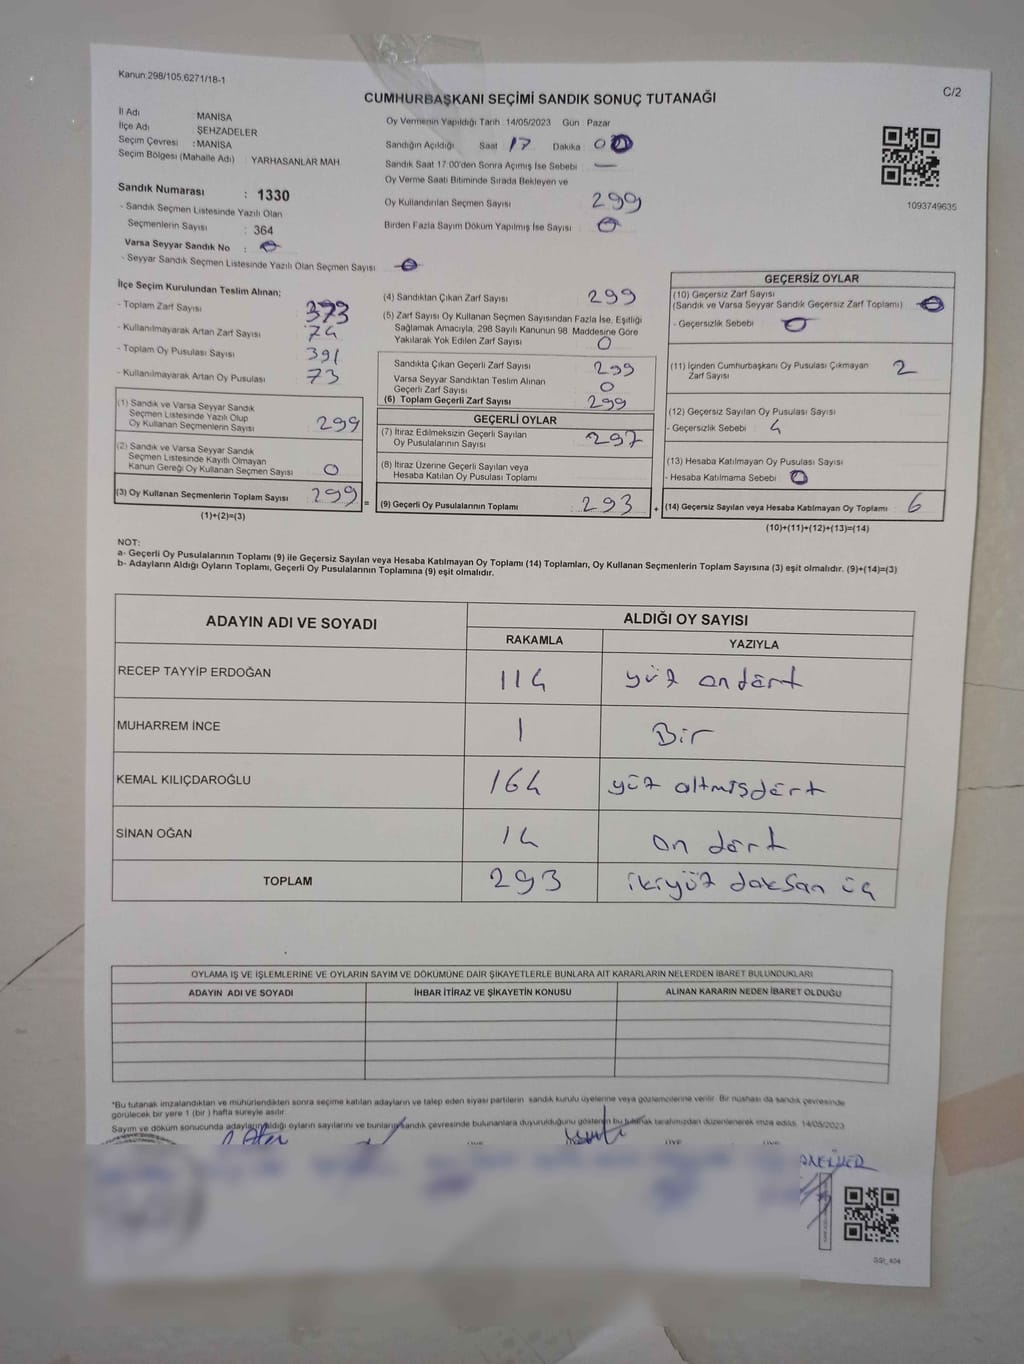 Kanun:298/105,6271/18-1
C/2
CUMHURBAŞKANI SEÇİMİ SANDIK SONUÇ TUTANAĞI
İl Adı : MANİSA
İlçe Adı : ŞEHZADELER
Seçim Çevresi : MANİSA
Seçim Bölgesi (Mahalle Adı) : YARHASANLAR MAH
Sandık Numarası : 1330
- Sandık Seçmen Listesinde Yazılı Olan
Seçmenlerin Sayısı : 364
Varsa Seyyar Sandık No : 0
- Seyyar Sandık Seçmen Listesinde Yazılı Olan Seçmen Sayısı 0
Oy Vermenin Yapıldığı Tarih 14/05/2023 Gün : Pazar
Sandığın Açıldığı Saat 17 Dakika : 00
Sandık Saat 17:00'den Sonra Açımış İse Sebebi —
Oy Verme Saati Bitiminde Sırada Bekleyen ve
Oy Kullandırılan Seçmen Sayısı 299
Birden Fazla Sayım Döküm Yapılmış İse Sayısı : 0
1093749635
İlçe Seçim Kurulundan Teslim Alınan;
- Toplam Zarf Sayısı : 373
- Kullanılmayarak Artan Zarf Sayısı : 74
- Toplam Oy Pusulası Sayısı : 391
- Kullanılmayarak Artan Oy Pusulası : 73
(1) Sandık ve Varsa Seyyar Sandık
Seçmen Listesinde Yazılı Olup
Oy Kullanan Seçmenlerin Sayısı 299
(2) Sandık ve Varsa Seyyar Sandık
Seçmen Listesinde Kayıtlı Olmayan
Kanun Gereği Oy Kullanan Seçmen Sayısı 0
(3) Oy Kullanan Seçmenlerin Toplam Sayısı 299 =
(1)+(2)=(3)
(4) Sandıktan Çıkan Zarf Sayısı 299
(5) Zarf Sayısı Oy Kullanan Seçmen Sayısından Fazla İse, Eşitliği
Sağlamak Amacıyla, 298 Sayılı Kanunun 98. Maddesine Göre
Yakılarak Yok Edilen Zarf Sayısı 0
Sandıkta Çıkan Geçerli Zarf Sayısı 299
Varsa Seyyar Sandıktan Teslim Alınan
Geçerli Zarf Sayısı 0
(6) Toplam Geçerli Zarf Sayısı 299
GEÇERLİ OYLAR
(7) İtiraz Edilmeksizin Geçerli Sayılan
Oy Pusulalarının Sayısı 297
(8) İtiraz Üzerine Geçerli Sayılan veya
Hesaba Katılan Oy Pusulası Toplamı
(9) Geçerli Oy Pusulalarının Toplamı 293 +
GEÇERSİZ OYLAR
(10) Geçersiz Zarf Sayısı
(Sandık ve Varsa Seyyar Sandık Geçersiz Zarf Toplamı) 0
- Geçersizlik Sebebi : 0
(11) İçinden Cumhurbaşkanı Oy Pusulası Çıkmayan
Zarf Sayısı 2
(12) Geçersiz Sayılan Oy Pusulası Sayısı
- Geçersizlik Sebebi : 4
(13) Hesaba Katılmayan Oy Pusulası Sayısı
- Hesaba Katılmama Sebebi : 0
(14) Geçersiz Sayılan veya Hesaba Katılmayan Oy Toplamı 6
(10)+(11)+(12)+(13)=(14)
NOT:
a- Geçerli Oy Pusulalarının Toplamı (9) ile Geçersiz Sayılan veya Hesaba Katılmayan Oy Toplamı (14) Toplamları, Oy Kullanan Seçmenlerin Toplam Sayısına (3) eşit olmalıdır. (9)+(14)=(3)
b- Adayların Aldığı Oyların Toplamı, Geçerli Oy Pusulalarının Toplamına (9) eşit olmalıdır.
ADAYIN ADI VE SOYADI ALDIĞI OY SAYISI
RAKAMLA YAZIYLA
RECEP TAYYİP ERDOĞAN 114 yüz ondört
MUHARREM İNCE 1 Bir
KEMAL KILIÇDAROĞLU 164 yüz altmışdört
SİNAN OĞAN 14 on dört
TOPLAM 293 ikiyüz doksan üç
OYLAMA İŞ VE İŞLEMLERİNE VE OYLARIN SAYIM VE DÖKÜMÜNE DAİR ŞİKAYETLERLE BUNLARA AİT KARARLARIN NELERDEN İBARET BULUNDUKLARI
ADAYIN ADI VE SOYADI İHBAR İTİRAZ VE ŞİKAYETİN KONUSU ALINAN KARARIN NEDEN İBARET OLDUĞU
*Bu tutanak imzalandıktan ve mühürlendikten sonra seçime katılan adayların ve talep eden siyasi partilerin sandık kurulu üyelerine veya gözlemcilerine verilir. Bir nüshası da sandık çevresinde
görülecek bir yere 1 (bir ) hafta süreyle asılır.
Sayım ve döküm sonucunda adayların aldığı oyların sayılarını ve bunların sandık çevresinde bulunanlara duyurulduğunu gösteren bu tutanak tarafımızdan düzenlenerek imza edildi. 14/05/2023